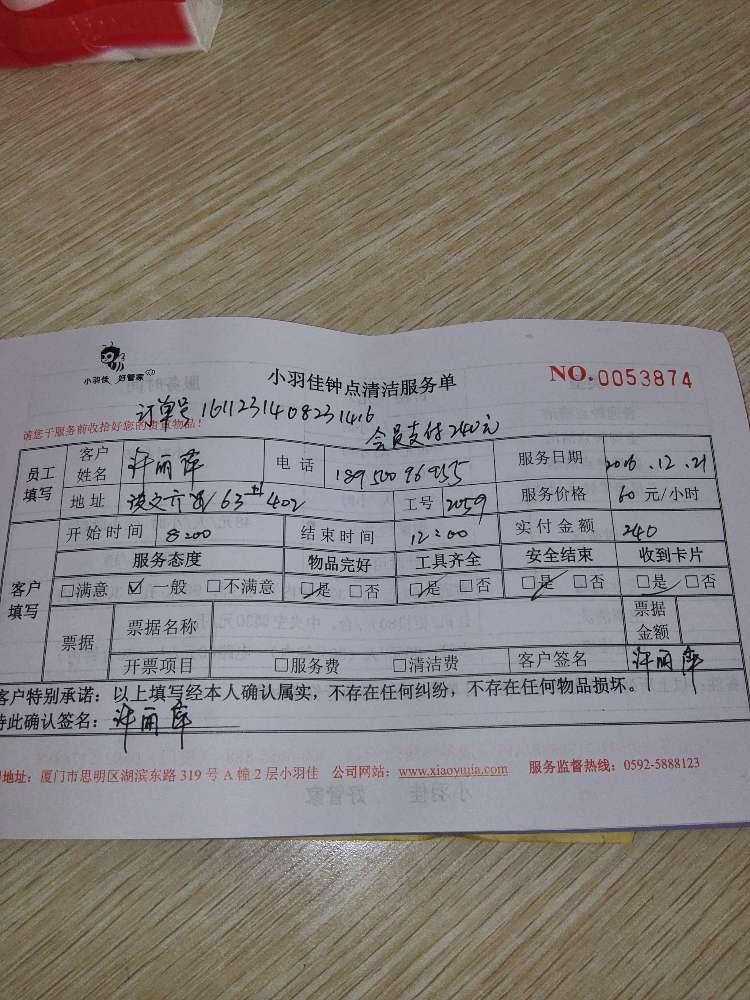 小羽佳 好管家
小羽佳钟点清洁服务单
NO.0053874
订单号 1611231408231416
请您于服务前收拾好您的贵重物品!
会员支付240元
员工填写 客户姓名 许丽萍 电话 18950096955 服务日期 2016.12.21
地址 63 402 工号 2059 服务价格 60 元/小时
客户填写 开始时间 8:00 结束时间 12:00 实付金额 240
服务态度 物品完好 工具齐全 安全结束 收到卡片
□满意 ☑一般 □不满意 ☑是 □否 ☑是 □否 ☑是 □否 ☑是 □否
票据 票据名称 票据金额
开票项目 □服务费 □清洁费 客户签名 许丽萍
客户特别承诺:以上填写经本人确认属实,不存在任何纠纷,不存在任何物品损坏。
特此确认签名:许丽萍
地址:厦门市思明区湖滨东路 319 号 A 幢 2 层小羽佳 公司网站:www.xiaoyujia.com 服务监督热线:0592-5888123